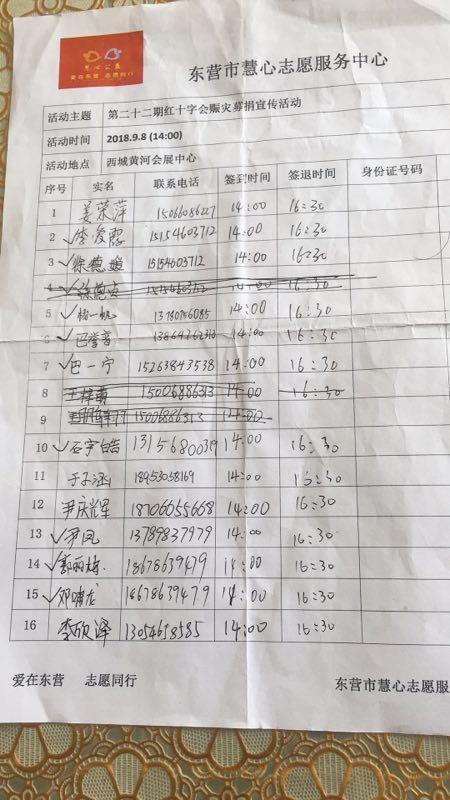 慧心公益
爱在东营 志愿同行
东营市慧心志愿服务中心
活动主题 第二十二期红十字会赈灾募捐宣传活动
活动时间 2018.9.8 (14:00)
活动地点 西城黄河会展中心
序号 实名 联系电话 签到时间 签退时间 身份证号码
1 姜荣萍 15066086227 14:00 16:30
2 ✓李爱霞 15154603712 14:00 16:30
3 ✓徐德媛 15154603712 14:00 16:30
4 徐德贞 15154603712 14:00 16:30
5 ✓ 13780756085 14:00 16:30
6 ✓ 14:00 16:30
7 ✓巴一宁 15263843538 14:00 16:30
8 15006886313 14:00 16:30
9 15006886313 14:00
10 ✓石宇皓 14:00 16:30
11 于子涵 18953058169 14:00 16:30
12 尹庆辉 18706055668 14:00 16:30
13 ✓尹凤 13789837979 14:00 16:30
14 ✓郭丽梅 18678639479 14:00 16:30
15 ✓邓啸龙 18678639479 14:00 16:30
16 李欣泽 13054658585 14:00 16:30
爱在东营 志愿同行 东营市慧心志愿服